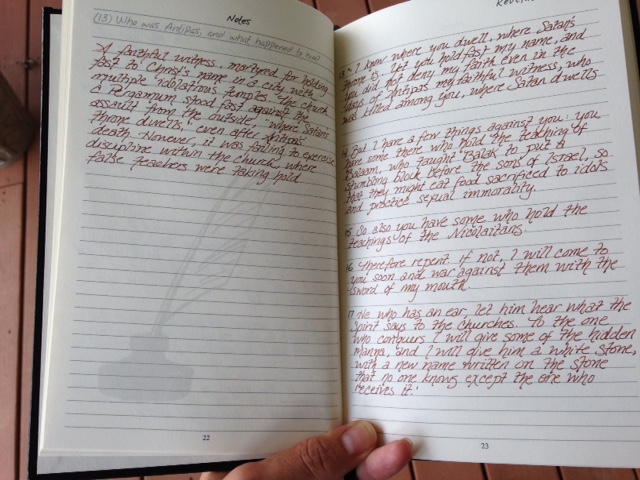 Notes
(13) Who was Antipas, and what happened to him?
A faithful witness, martyred for holding
fast to Christ's name in a city with
multiple idolatrous temples. The church
@ Pergamum stood fast against the
assault from the outside, "where Satan's
throne dwells," even after Antipas'
death. However, it was failing to exercise
discipline within the church where
false teachers were taking hold.
22
13 "'I know where you dwell, where Satan's
throne is. Yet you hold fast my name, and
you did not deny my faith even in the
days of Antipas my faithful witness, who
was killed among you, where Satan dwells.
14 But I have a few things against you: you
have some there who hold the teaching of
Balaam, who taught Balak to put a
stumbling block before the sons of Israel, so
that they might eat food sacrificed to idols
and practice sexual immorality.
15 So also you have some who hold the
teachings of the Nicolaitans.
16 Therefore repent. If not, I will come to
you soon and war against them with the
sword of my mouth.
17 He who has an ear, let him hear what the
Spirit says to the churches. To the one
who conquers I will give some of the hidden
manna, and I will give him a white stone,
with a new name written on the stone
that no one knows except the one who
receives it.'
23